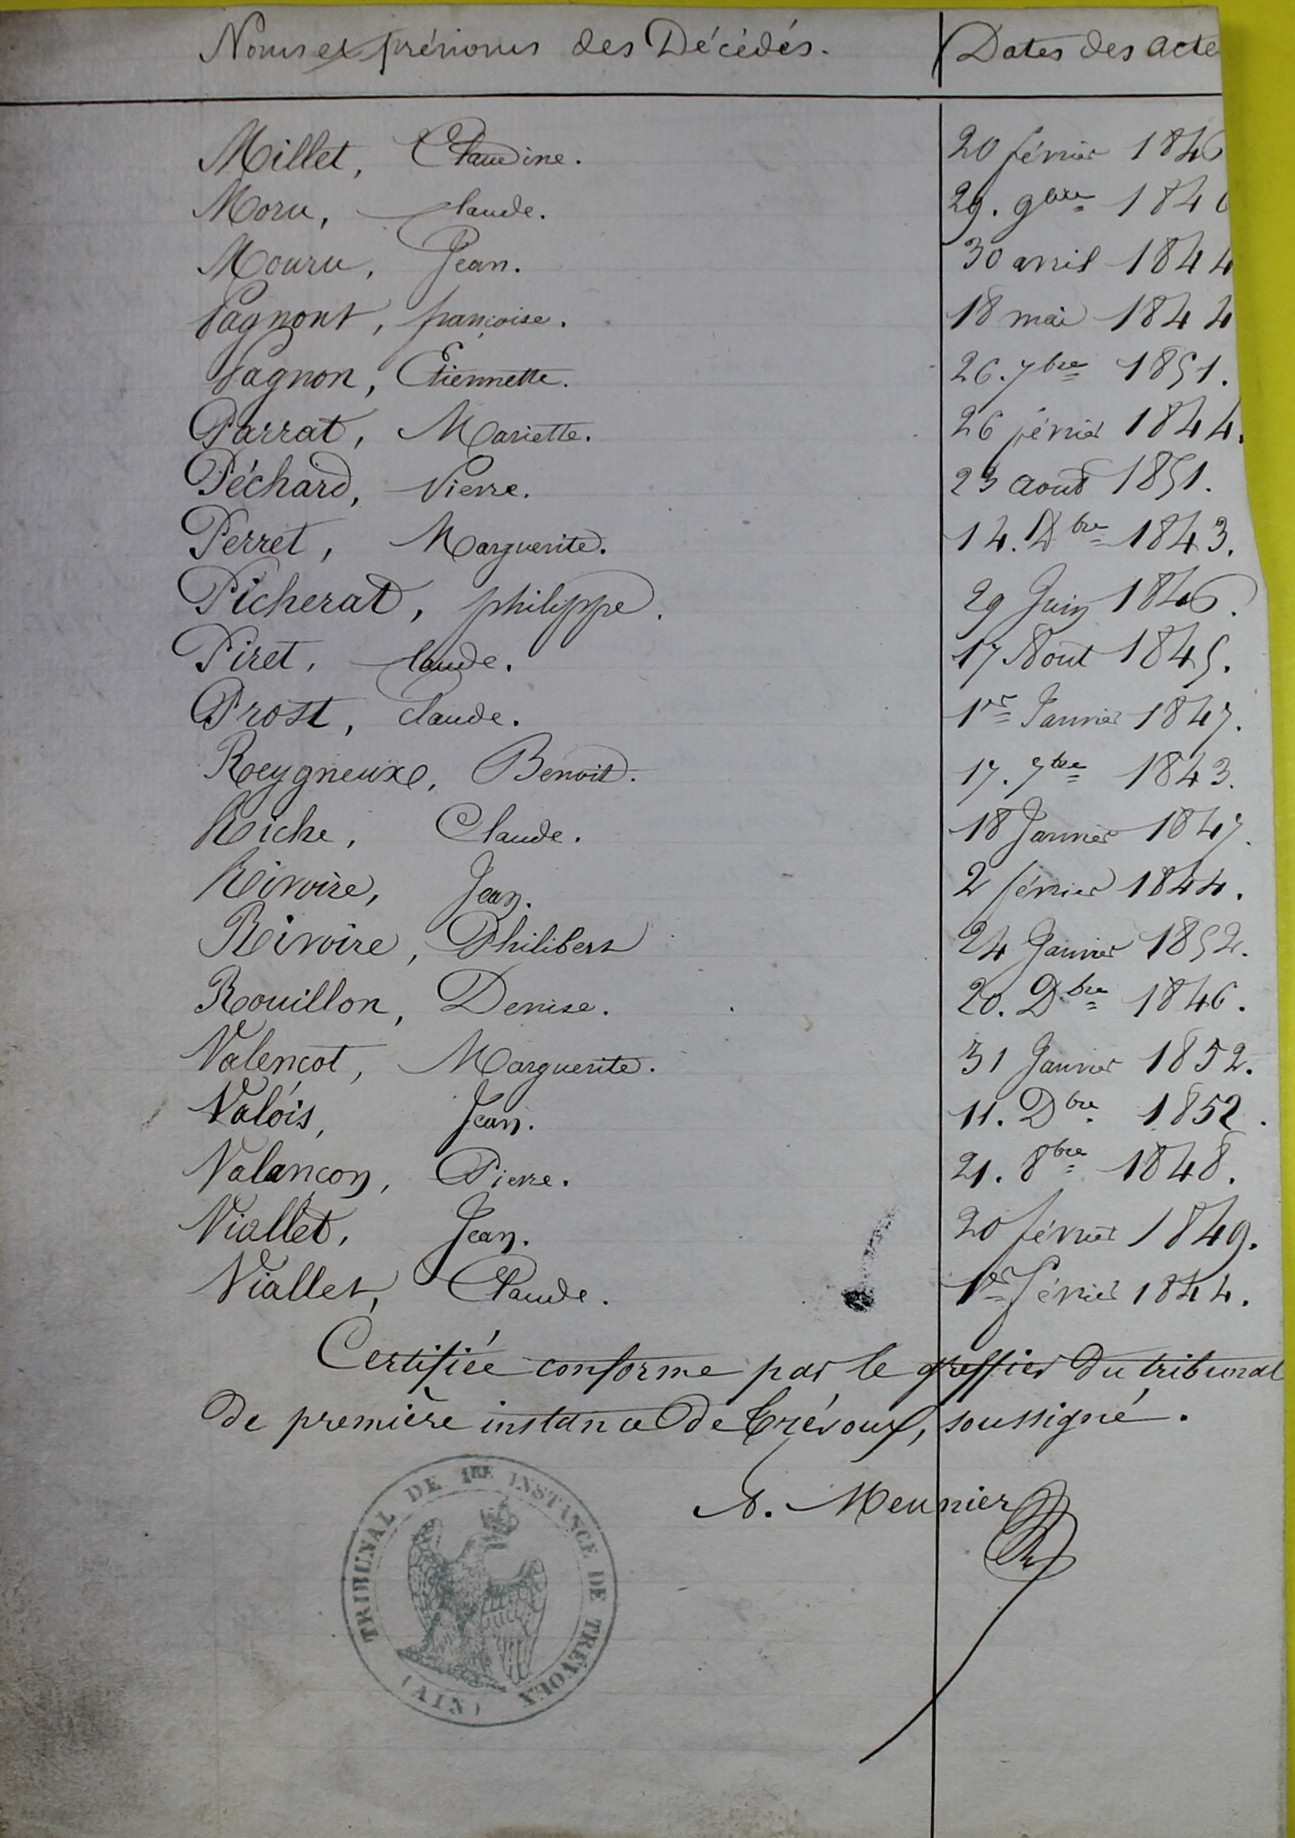 Noms et prénoms des Décédés. Dates des acte
Millet, Claudine. 20 février 1846
Moru, Claude. 29. 9bre 184
Mouru, Jean. 30 avril 1844
Pagnont, françoise. 18 mai 1844
Pagnon, Etiennette. 26. 7bre 1851.
Parrat, Mariette. 26 février 1844.
Péchard, Pierre. 23 août 1851.
Perret, Marguerite. 14. Dbre 1843.
Picherat, philippe. 29 Juin 1846.
Piret, Claude. 17 Aout 1845.
Prost, Claude. 1er Janvier 1847.
Reygneux, Benoit. 17. 7bre 1843.
Riche, Claude. 18 Janvier 1847.
Rivoire, Jean. 2 février 1844.
Rivoire, Philibert 24 Janvier 1852.
Rouillon, Denise. 20. Dbre 1846.
Valencot, Marguerite. 31 Janvier 1852.
Valois, Jean. 11. Dbre 1852.
Valançon, Pierre. 21. 8bre 1848.
Viallet, Jean. 20 février 1849.
Viallet, Claude. 1er février 1844.
Certifiée conforme par le greffier du tribunal
de première instance de Trévoux, soussigné.
A. Meunier
TRIBUNAL DE 1RE INSTANCE DE TRÉVOUX
(AIN)